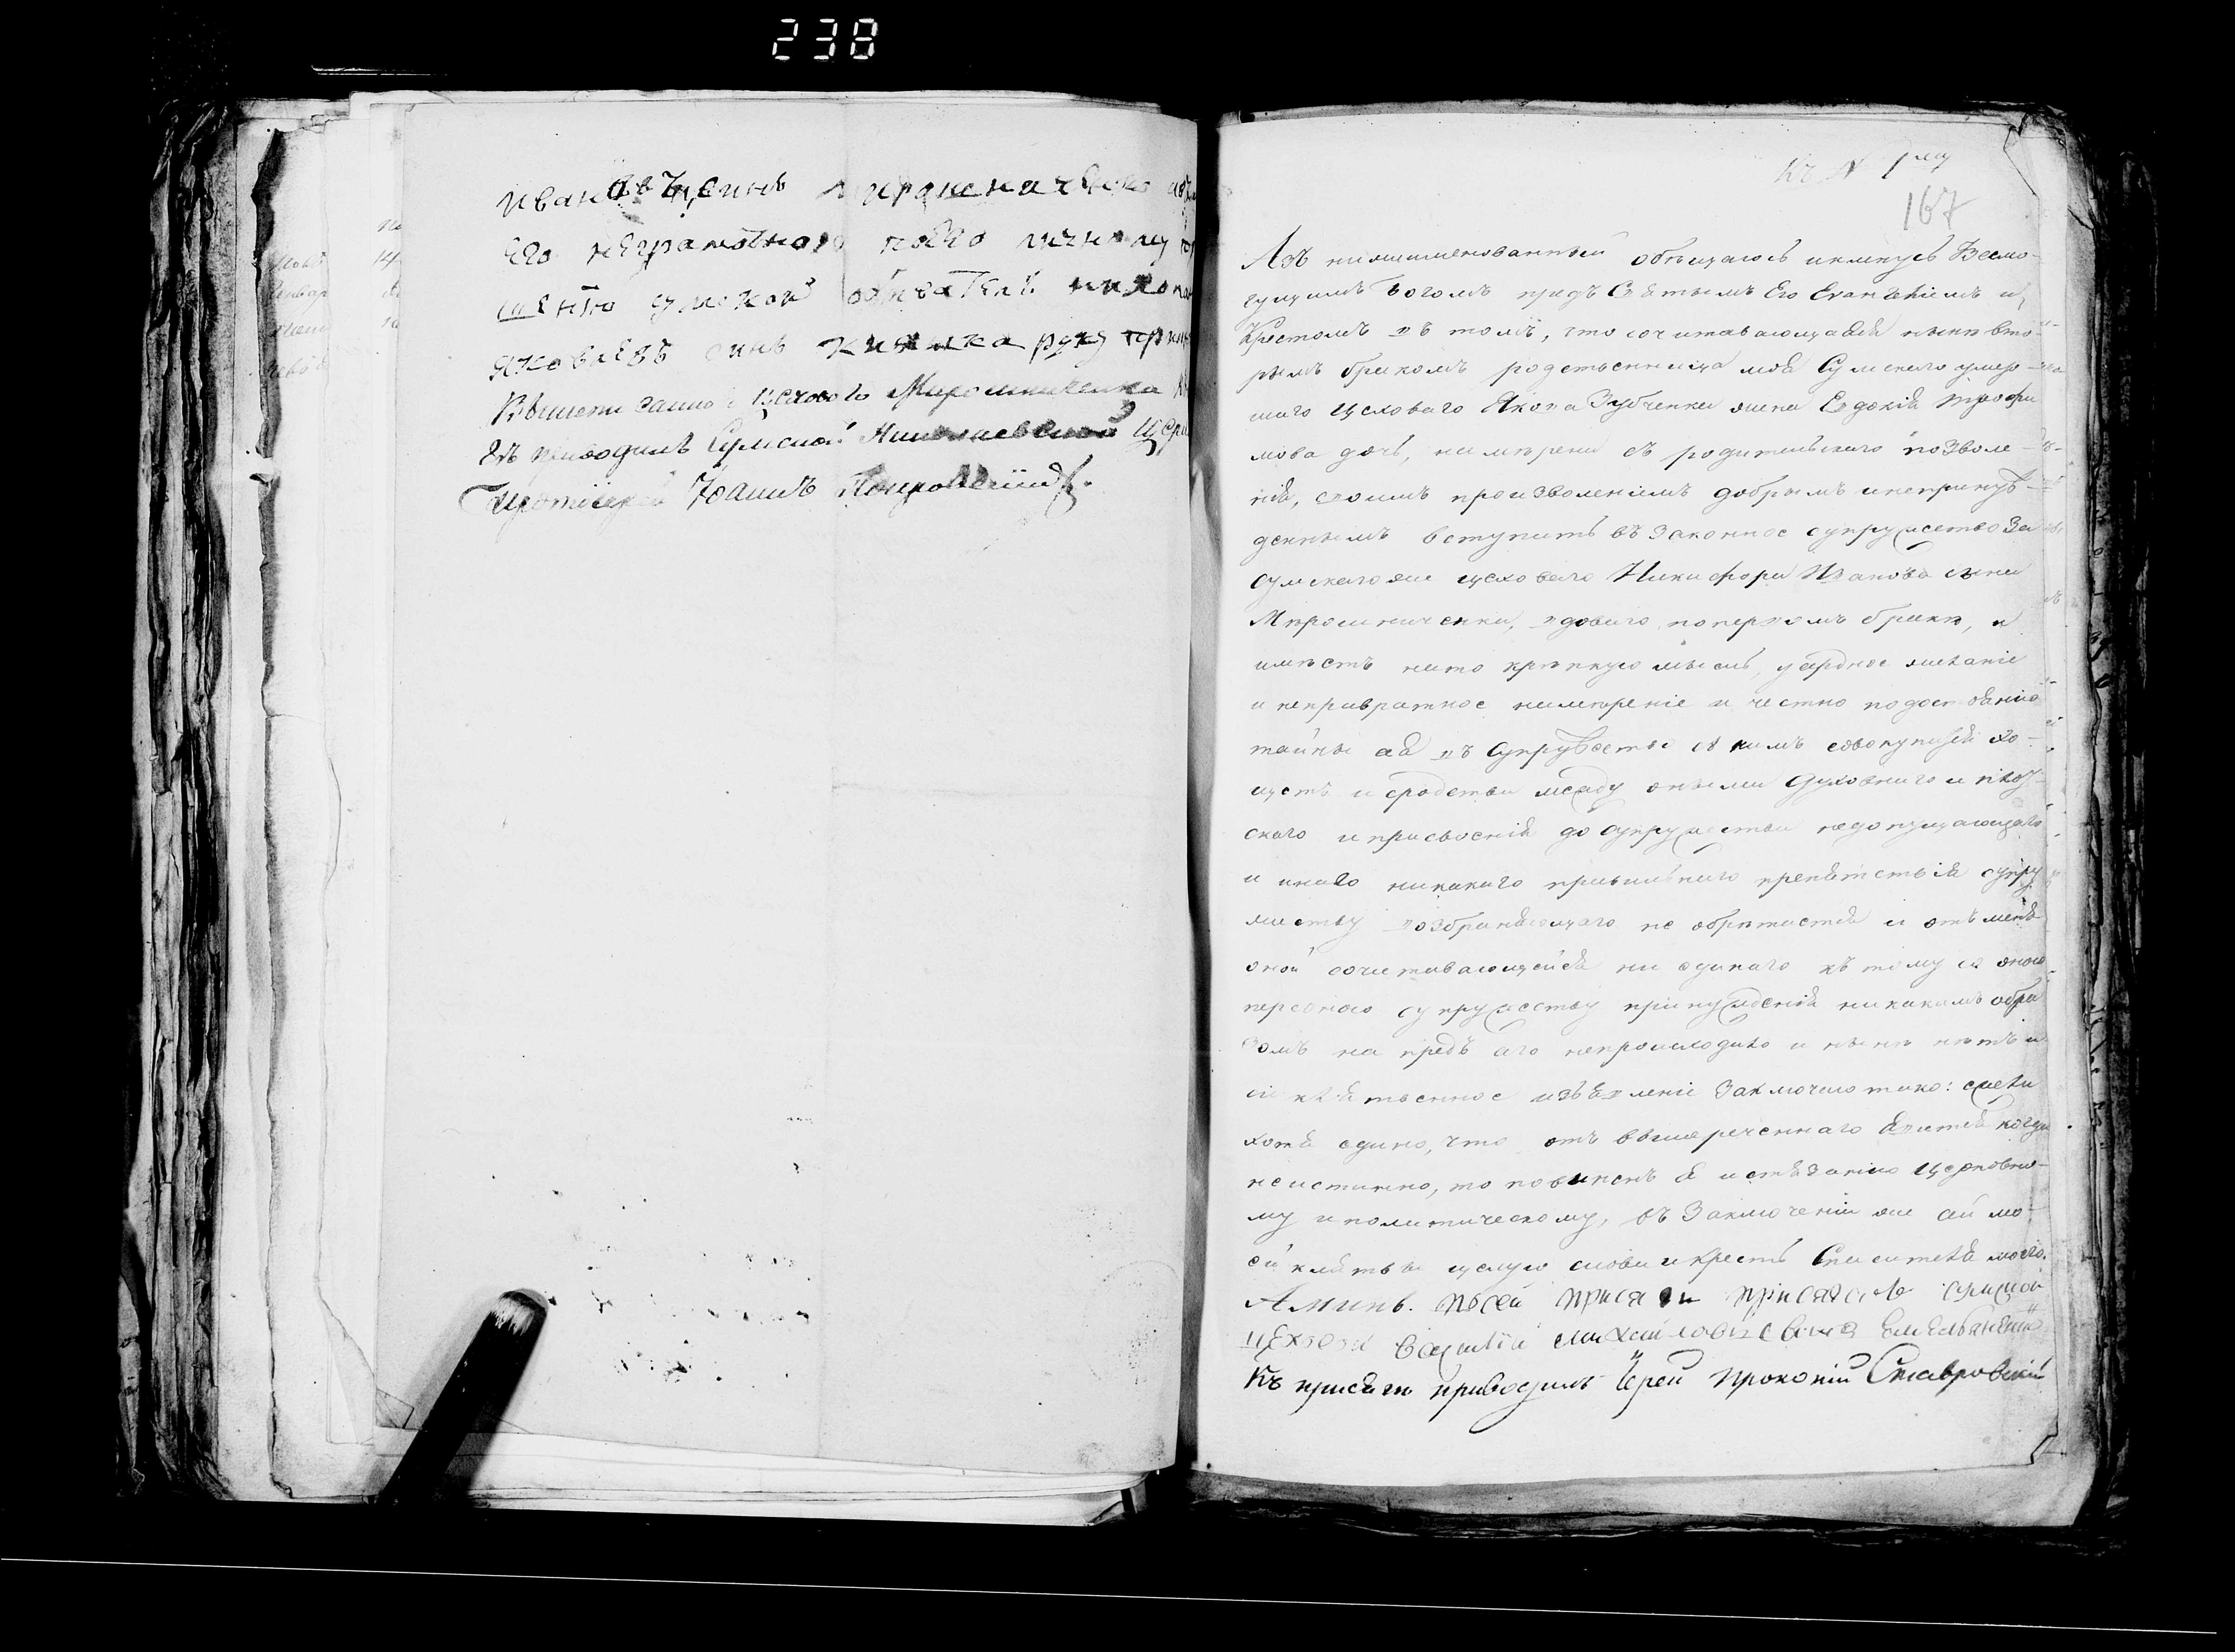 238
Ивановъ синъ
его неграмотного по его личному
шению сумской обиватель
Яковлевъ синъ руку
Вышеписанного цехового Мирошниченка
приводилъ Сумской Николаевской
Протоіерей Іоаннъ
Къ N
167
Азъ нижшименованный обѣщаюсь и кленусь Всемо-
гущимъ Богомъ предъ Святымъ Его Евангеліемъ и
Крестомъ въ томъ, что сочитавающаяся нынѣ вто-
рымъ бракомъ родственница моя Сумскаго умер-
шаго цеховаго Якова Зубченка жена Евдокія Трофи
мова дочь, намѣрена съ родительскаго позволе-
нія, своимъ произволеніемъ добрымъ и непринуж-
деннымъ вступить въ законное супружество за
сумскаго же цеховаго Никифора Иванова сына
Мирошниченка, вдоваго по первомъ бракѣ, и
имѣетъ на то крѣпкую мысль, усердное желаніе
и непревратное намѣреніе и честно по достоянію
тайны сея въ супружество съ нимъ совокупится хо-
щетъ и сродства между оными духовнаго и плот-
скаго и присвоенія до супружества недопущающаго
и инаго никакаго правильнаго препятствія супру
жеству возбраняющаго не обрѣтается и отъ меня
оной сочитавающейся ни единаго къ тому со оною
персоною супружеству принужденія никакимъ обра
зомъ на предъ сего непроисходило и нынѣ нѣтъ и
сіе клятвенное изъявленіе заключаю тако: ежели
хотя едино, что отъ вышереченнаго явится когда
неистинно, то повиненъ я истязанію церковно-
му и политическому, въ заключеніи же сей мо-
ей клятвы цѣлую слова и крестъ Спасителя моего.
Аминь. по сей присяги присягалъ сумской
цеховой Василій Михайловъ синъ Емельяненко
Къ присягѣ приводилъ Іерей Прокопій Ставровскій